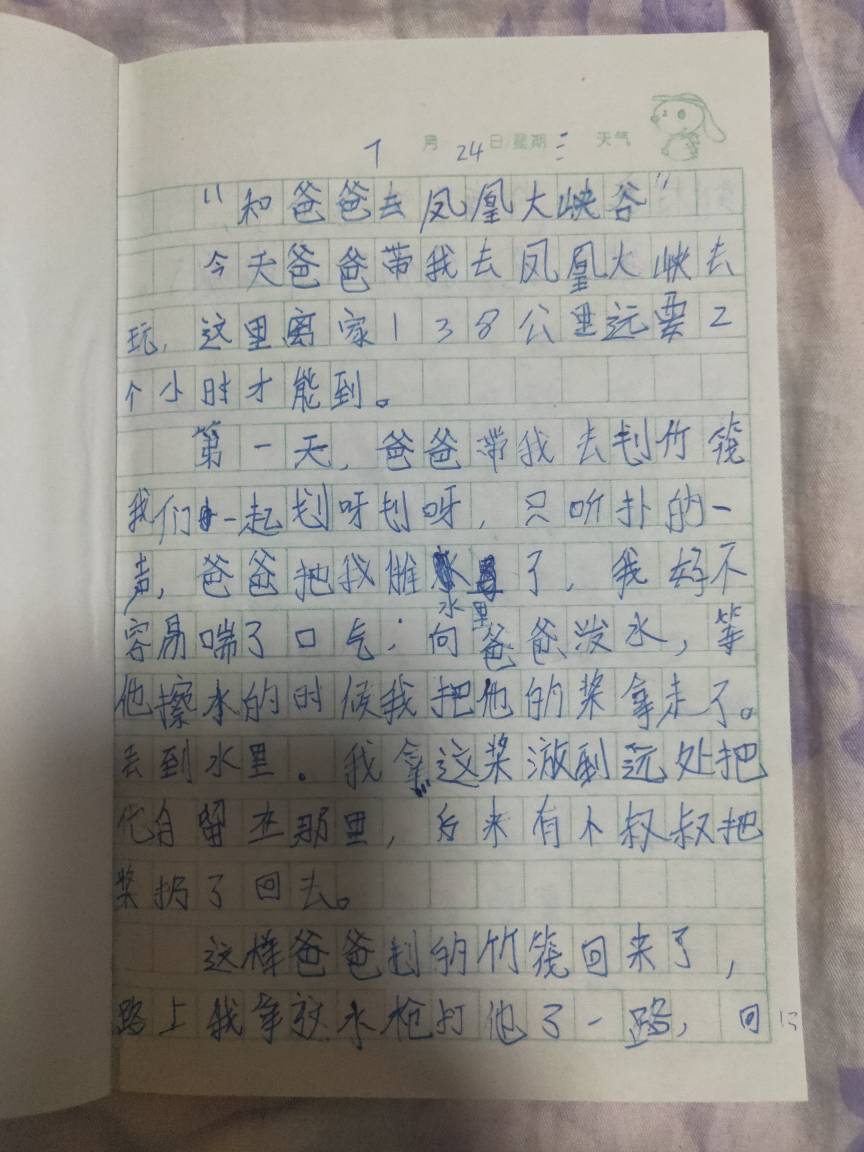 7月24日星期三 天气
"和爸爸去凤凰大峡谷"
今天爸爸带我去凤凰大峡去
玩，这里离家138公里远要2
个小时才能到。
第一天，爸爸带我去划竹筏
我们一起划呀划呀，只听扑的一
声，爸爸把我推水里了，我好不
容易喘了口气；向爸爸泼水，等
他擦水的时候我把他的桨拿走了。
丢到水里。我拿这桨游到远处把
他自留在那里，后来有个叔叔把
桨扔了回去。
这样爸爸划的竹筏回来了，
路上我拿这水枪打他了一路，回